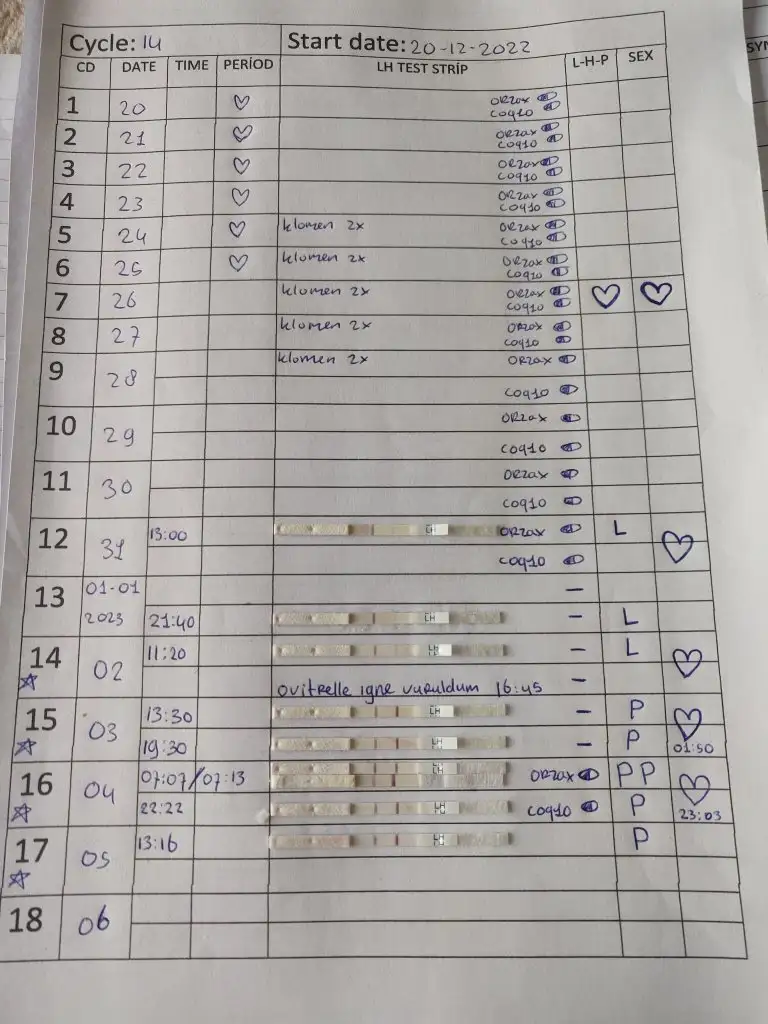 Cycle: 14 Start date: 20-12-2022
CD DATE TIME PERİOD LH TEST STRİP L-H-P SEX
1 20 ORzax
COQ10
2 21 ORzax
COQ10
3 22 ORzax
COQ10
4 23 ORzax
COQ10
5 24 klomen 2x ORzax
COQ10
6 25 klomen 2x ORzax
COQ10
7 26 klomen 2x ORzax
COQ10
8 27 klomen 2x ORzax
COQ10
9 28 klomen 2x ORzax
COQ10
10 29 ORzax
COQ10
11 30 ORzax
COQ10
12 31 13:00 LH ORzax L
COQ10
13 01-01 –
2023 21:40 LH – L
14 02 11:20 LH – L
ovitrelle igne vuruldum 16:45 –
15 03 13:30 LH – P
19:30 LH – P 01:50
16 04 07:07/07:13 LH ORzax PP
22:22 LH COQ10 P 23:03
17 05 13:16 LH P
18 06